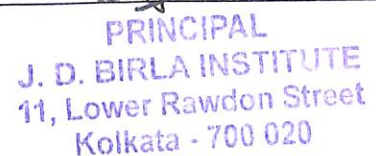 PRINCIPAL
J. D. BIRLA INSTITUTE
11, Lower Rawdon Street
Kolkata - 700 020